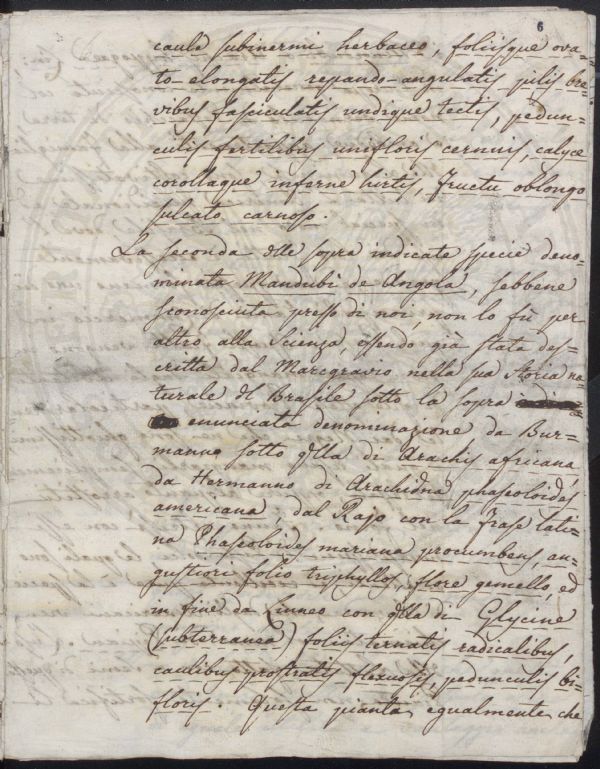 6
caule subinermi herbaceo, foliisque ova=
to-elongatis repando-angulatis pilis bre=
vibus fasciculatis undique tectis, pedun=
culis fertilibus unifloris cernuis, calyce
corollaque inferne hirtis, fructu oblongo
sulcato carnoso.
La seconda dlle sopra indicate specie deno=
minata Mandubi de Angola, sebbene
sconosciuta presso di noi, non lo fù per
altro alla Scienza, essendo già stata des=
critta dal Marcgravio nella sua Storia na=
turale dl Brasile sotto la sopra
enunciata denominazione da Bur=
manno sotto qlla di Arachis africana,
da Hermanno di Arachidna phaseoloides
americana, dal Rajo con la frase lati=
na Phaseoloides mariana procumbens, an=
gustiori folio triphyllos, flore gemello, ed
in fine da Linneo con qlla di Glycine
(subterranea) foliis ternatis radicalibus,
caulibus prostratis flexuosis, pedunculis bi=
floris. Questa pianta egualmente che